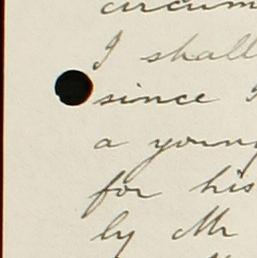 circum
I shall
since I
a young
for his
by Mr